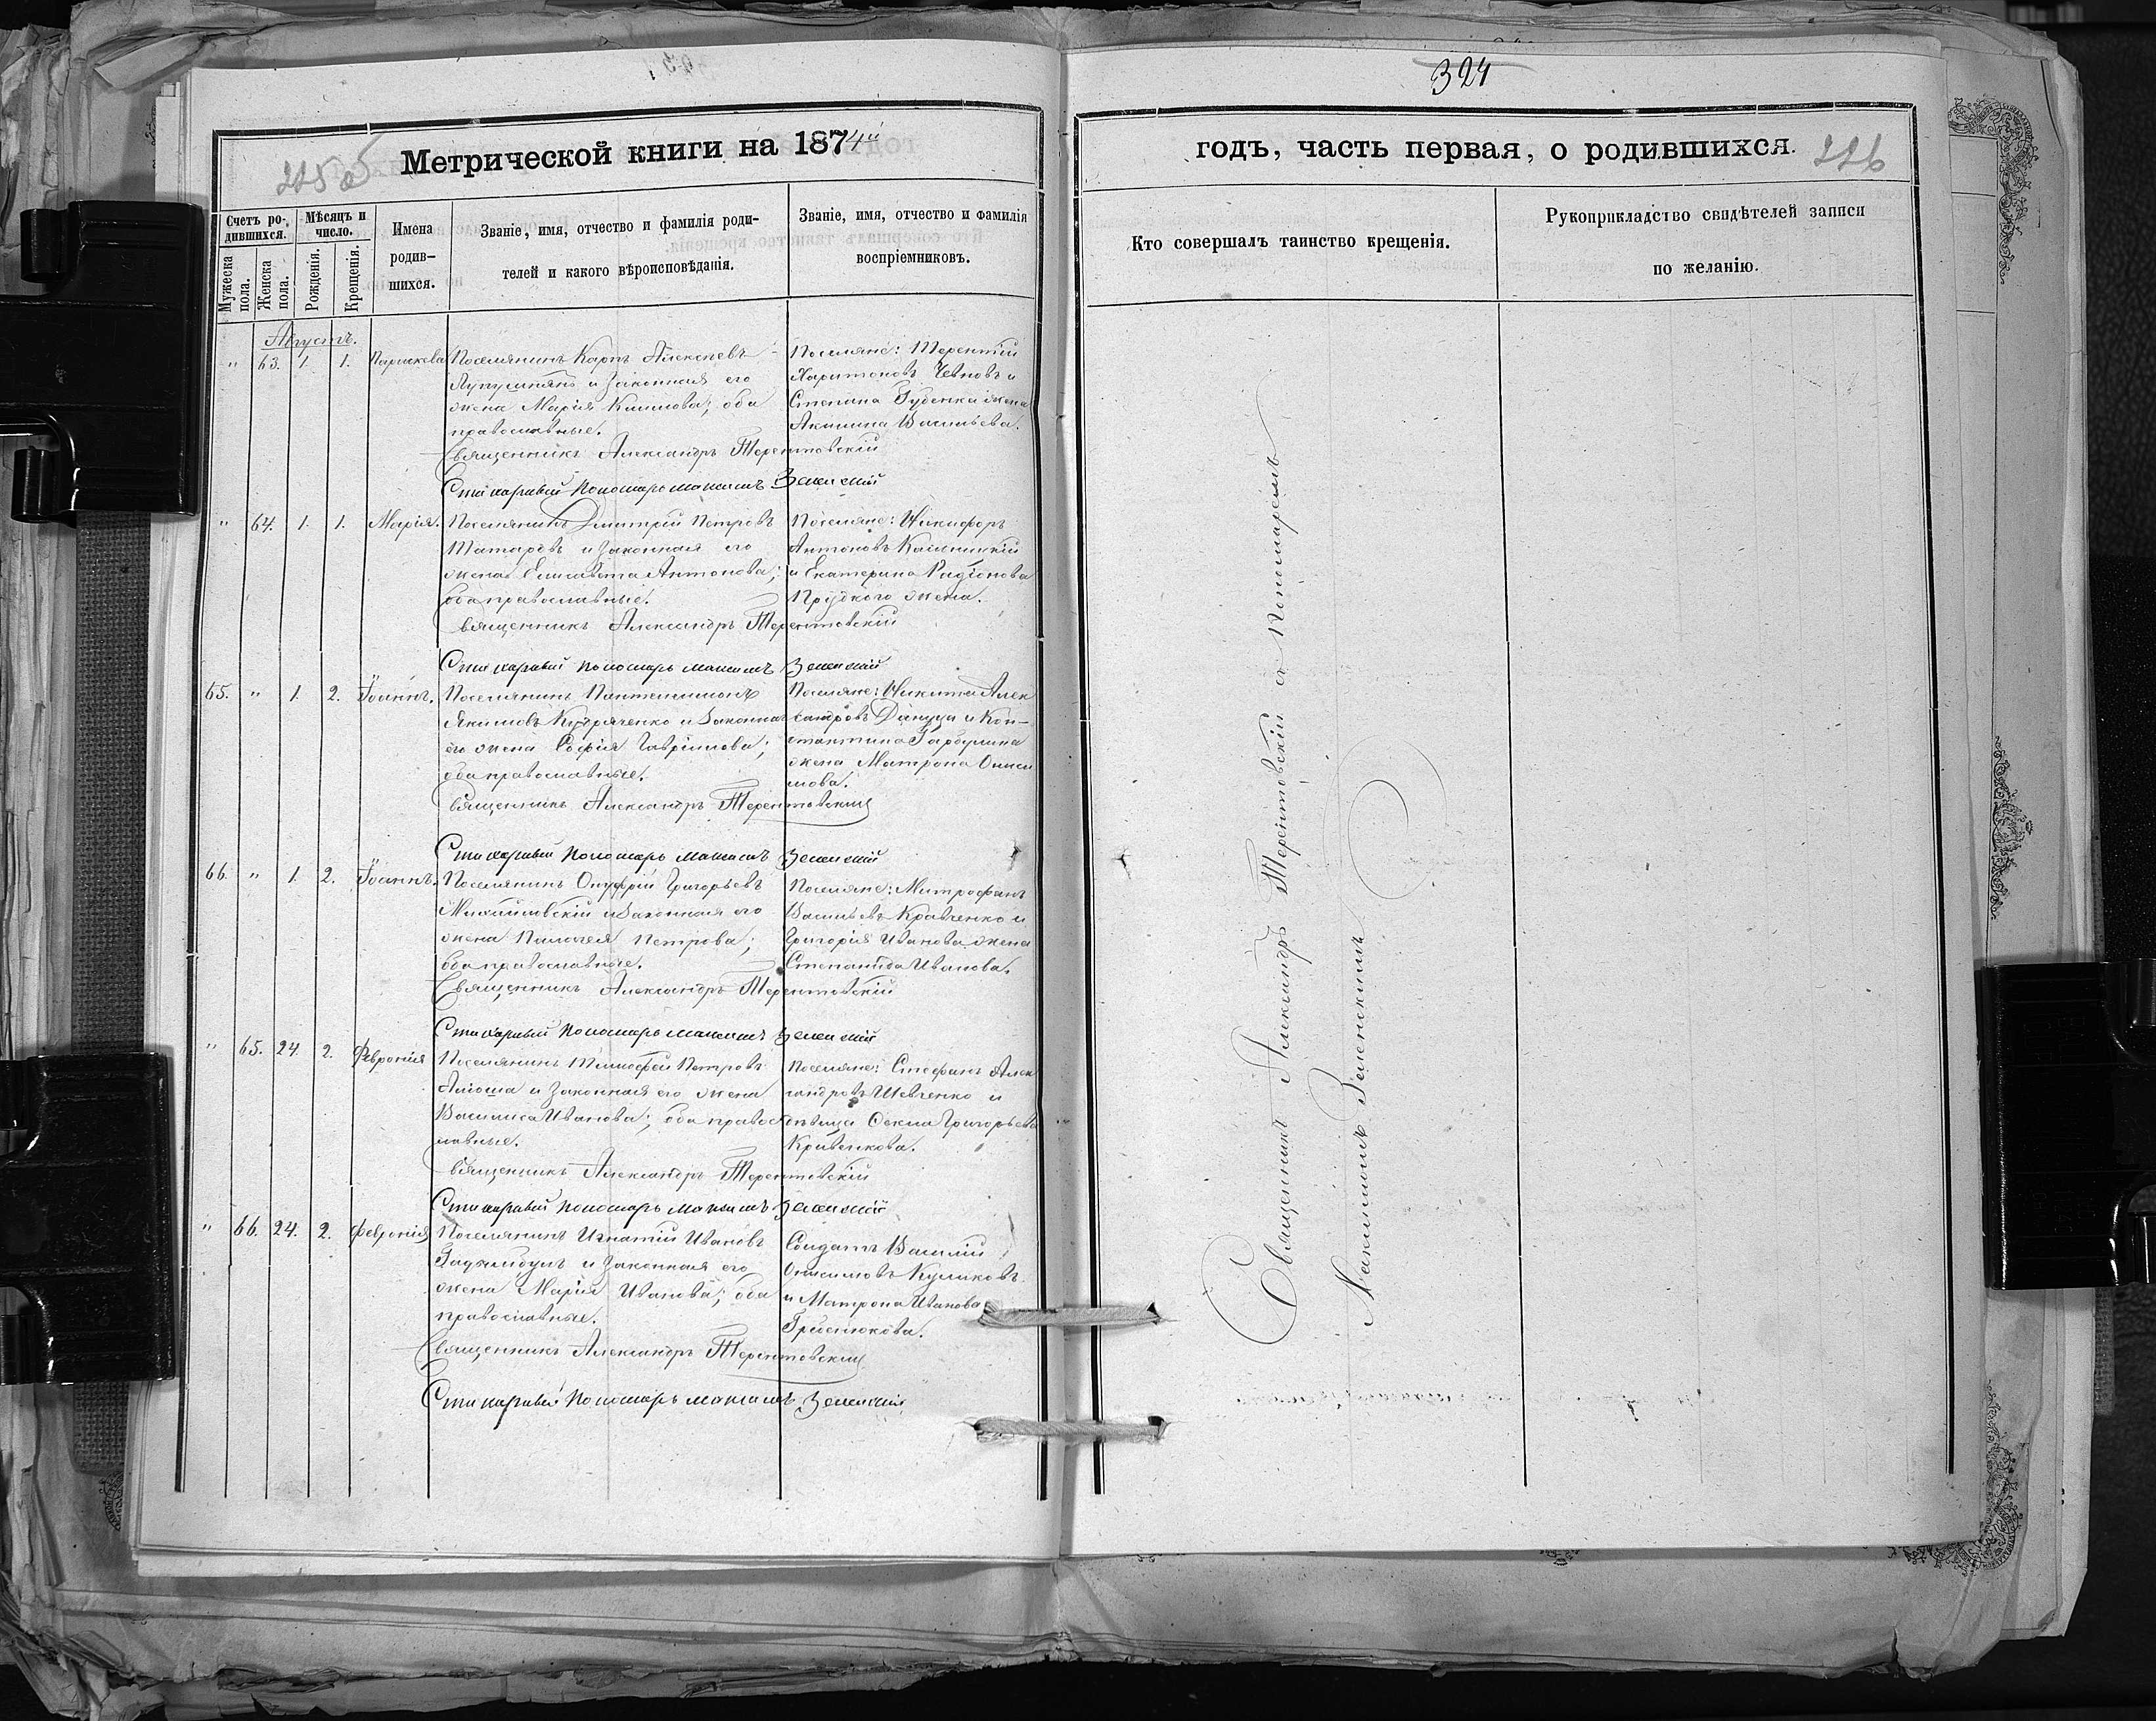 324
Метрической книги на 1874й
годъ, часть первая, о родившихся.
226
Счетъ ро-
дившихся.
Мужеска пола.
Женска пола.
Мѣсяцъ и
число.
Рожденія.
Крещенія.
Имена
родив-
шихся.
Званіе, имя, отчество и фамилія роди-
телей и какого вѣроисповѣданія.
Званіе, имя, отчество и фамилія
воспріемниковъ.
Кто совершалъ таинство крещенія.
Рукоприкладство свидѣтелей записи
по желанію.
Августъ.
" 63. 1. 1. Параскева Поселянинъ Карпъ Алексѣевъ
и законная его
жена Марія Климова; оба
православные.
Поселяне: Терентій
Харитоновъ и
Степана Губенка жена
Акилина Васильева.
Священникъ Александръ Терентовскій
Стихарный Пономарь Максимъ Зеленскій
" 64. 1. 1. Марія. Поселянинъ Димитрій Петровъ
Татаровъ и законная его
жена Елисавета Антонова;
оба православные.
Поселяне: Никифоръ
Антоновъ
и Екатерина Родіонова
жена.
Священникъ Александръ Терентовскій
Стихарный Пономарь Максимъ Зеленскій
65. " 1. 2. Іоаннъ. Поселянинъ Пантелимонъ
Якимовъ Кучеряченко и законная
его жена Софія Гавріилова;
оба православные.
Поселяне: Никита Алек
сандровъ и Кон-
стантина жена Матрона Ониси
мова.
Священникъ Александръ Терентовскій
Стихарный Пономарь Максимъ Зеленскій
66. " 1. 2. Іоаннъ. Поселянинъ Онуфрій Григорьевъ
Михайловскій и законная его
жена Пелагея Петрова;
оба православные.
Поселяне: Митрофанъ
Васильевъ Кравченко и
Григорія Иванова жена
Степанида Иванова.
Священникъ Александръ Терентовскій
Стихарный Пономарь Максимъ Зеленскій
" 65. 24. 2. Февронія Поселянинъ Тимофей Петровъ
и законная его жена
Василиса Иванова; оба правос
лавные.
Поселяне: Стефанъ Алек
сандровъ Шевченко и
дѣвица Григорьева
Кривенкова.
Священникъ Александръ Терентовскій
Стихарный Пономарь Максимъ Зеленскій
" 66. 24. 2. Февронія Поселянинъ Игнатій Ивановъ
и законная его
жена Марія Иванова; оба
православные.
Солдатъ Василій
Онисимовъ Куликовъ
и Матрона Иванова
Священникъ Александръ Терентовскій
Стихарный Пономарь Максимъ Зеленскій
Священникъ Александръ Терентовскій съ Пономаремъ
Максимомъ Зеленскимъ